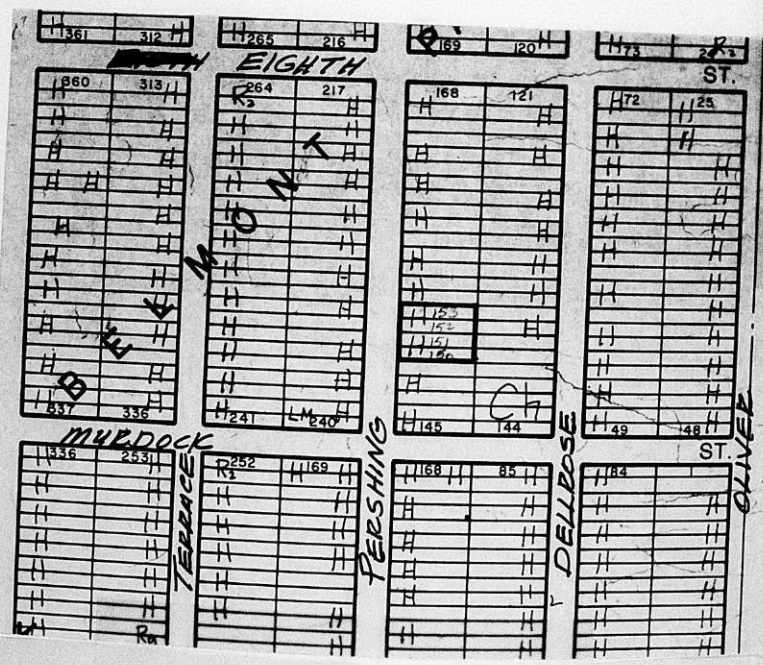 361 312 265 216 169 120 73
EIGHTH ST.
360 313 R2 264 217 168 121 72 25
BELMONT
153
152
151
150
Ch
337 336 241 LM 240 145 144 49 48
MURDOCK ST.
336 253 R2 252 169 168 85 84
TERRACE
PERSHING
DELLROSE
OLIVER
H